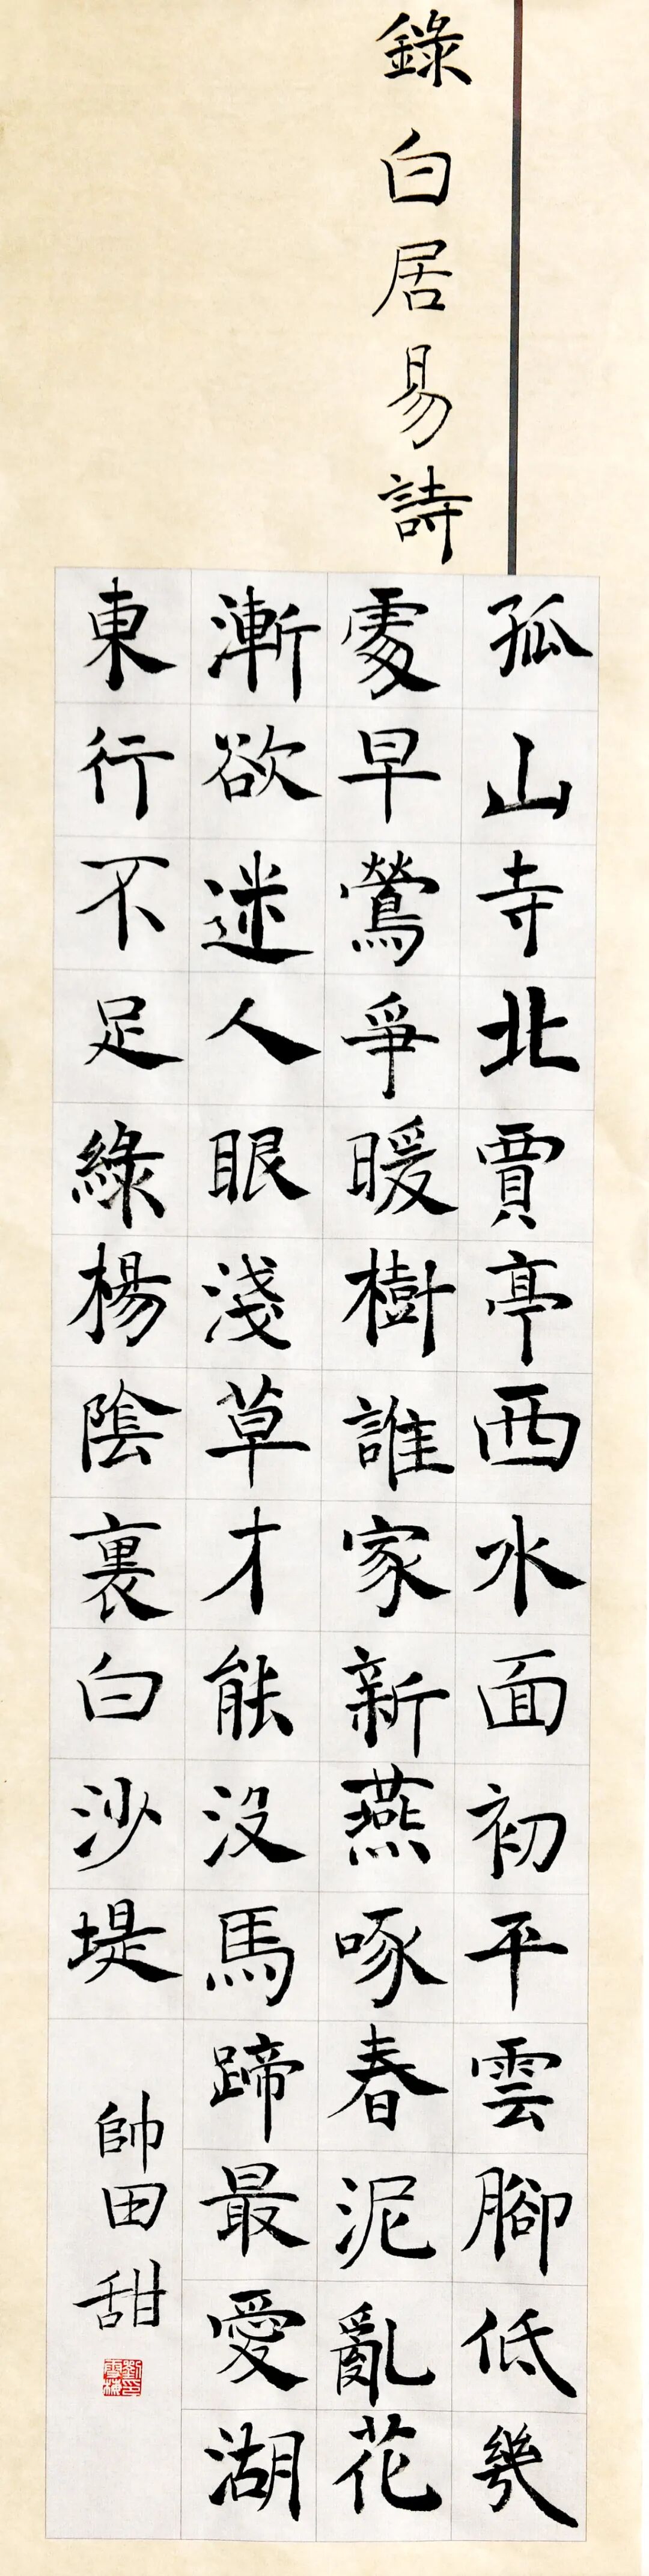 錄白居易詩
孤山寺北賈亭西水面初平雲腳低幾
處早鶯爭暖樹誰家新燕啄春泥亂花
漸欲迷人眼淺草才能沒馬蹄最愛湖
東行不足綠楊陰裏白沙堤
帥田甜